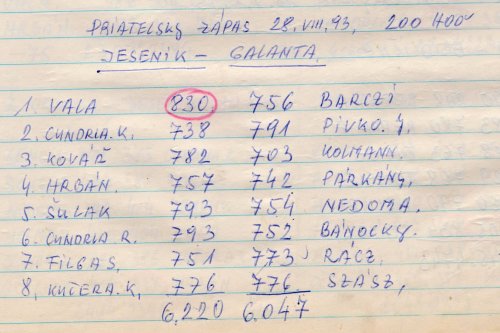 PRIATELSKÝ ZÁPAS 28.VIII.93, 200 HODOV
JESENIK - GALANTA.
1. VALA 830 756 BARCZI
2. CUNDRLA.K. 738 791 PIVKO.J.
3. KOVÁŘ 782 703 KOLMANN.
4. HRBÁN. 757 742 PÁRKÁNY,
5. ŠULAK 793 754 NEDOMA.
6. CUNDRLA R. 793 752 BÁNOCKY.
7. FILGAS, 751 773 RÁCZ,
8, KUČERA.K, 776 776 SZÁSZ,
6.220 6.047